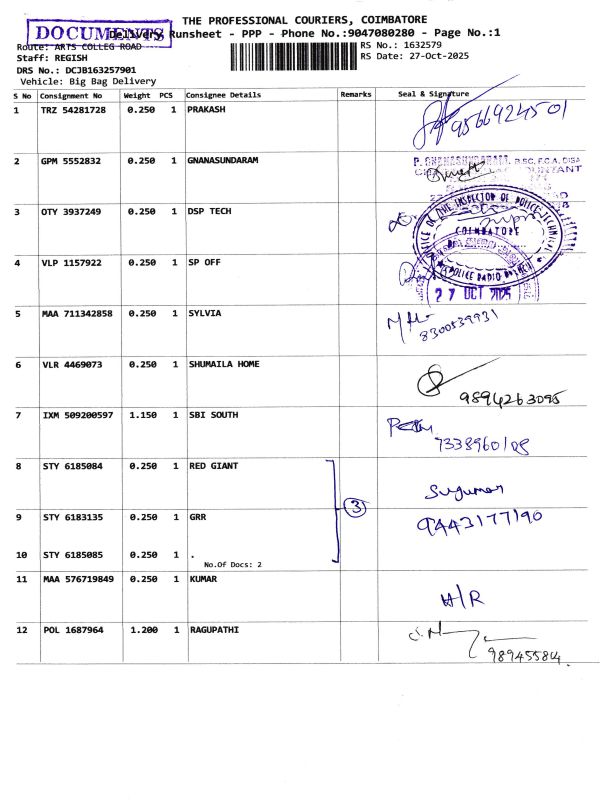 THE PROFESSIONAL COURIERS, COIMBATORE
DOCUMENTS
Delivery Runsheet - PPP - Phone No.:9047080280 - Page No.:1
Route: ARTS COLLEG ROAD
RS No.: 1632579
Staff: REGISH
RS Date: 27-Oct-2025
DRS No.: DCJB163257901
Vehicle: Big Bag Delivery
S No Consignment No Weight PCS Consignee Details Remarks Seal & Signature
1 TRZ 54281728 0.250 1 PRAKASH
9566924501
2 GPM 5552832 0.250 1 GNANASUNDARAM
P. GNANASUNDARAM, B.SC, F.C.A, DISA
3 OTY 3937249 0.250 1 DSP TECH
OFFICE OF THE INSPECTOR OF POLICE-TECHNICAL
COIMBATORE
POLICE RADIO BRANCH
4 VLP 1157922 0.250 1 SP OFF
27 OCT 2025
5 MAA 711342858 0.250 1 SYLVIA
8300539931
6 VLR 4469073 0.250 1 SHUMAILA HOME
9894263095
7 IXM 509200597 1.150 1 SBI SOUTH
7338960108
8 STY 6185084 0.250 1 RED GIANT
Sugumar
3
9 STY 6183135 0.250 1 GRR
9443177190
10 STY 6185085 0.250 1 .
No.Of Docs: 2
11 MAA 576719849 0.250 1 KUMAR
H/R
12 POL 1687964 1.200 1 RAGUPATHI
989455814